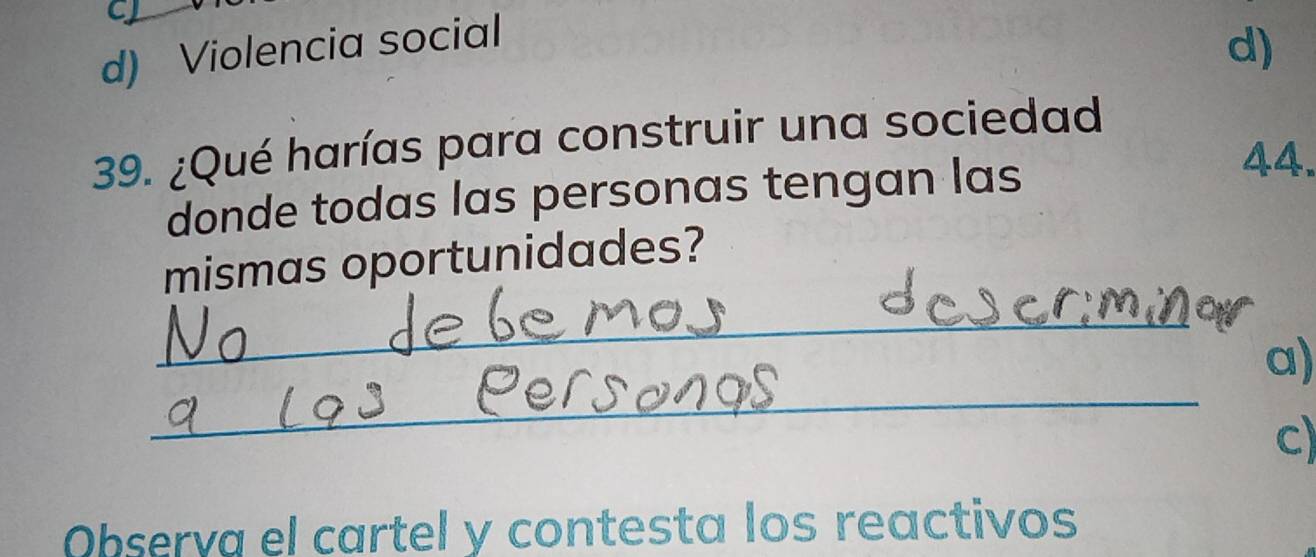 c)
d) Violencia social
d)
39. ¿Qué harías para construir una sociedad
donde todas las personas tengan las
mismas oportunidades?
44.
No debemos descriminar
a las personas
a)
c)
Observa el cartel y contesta los reactivos